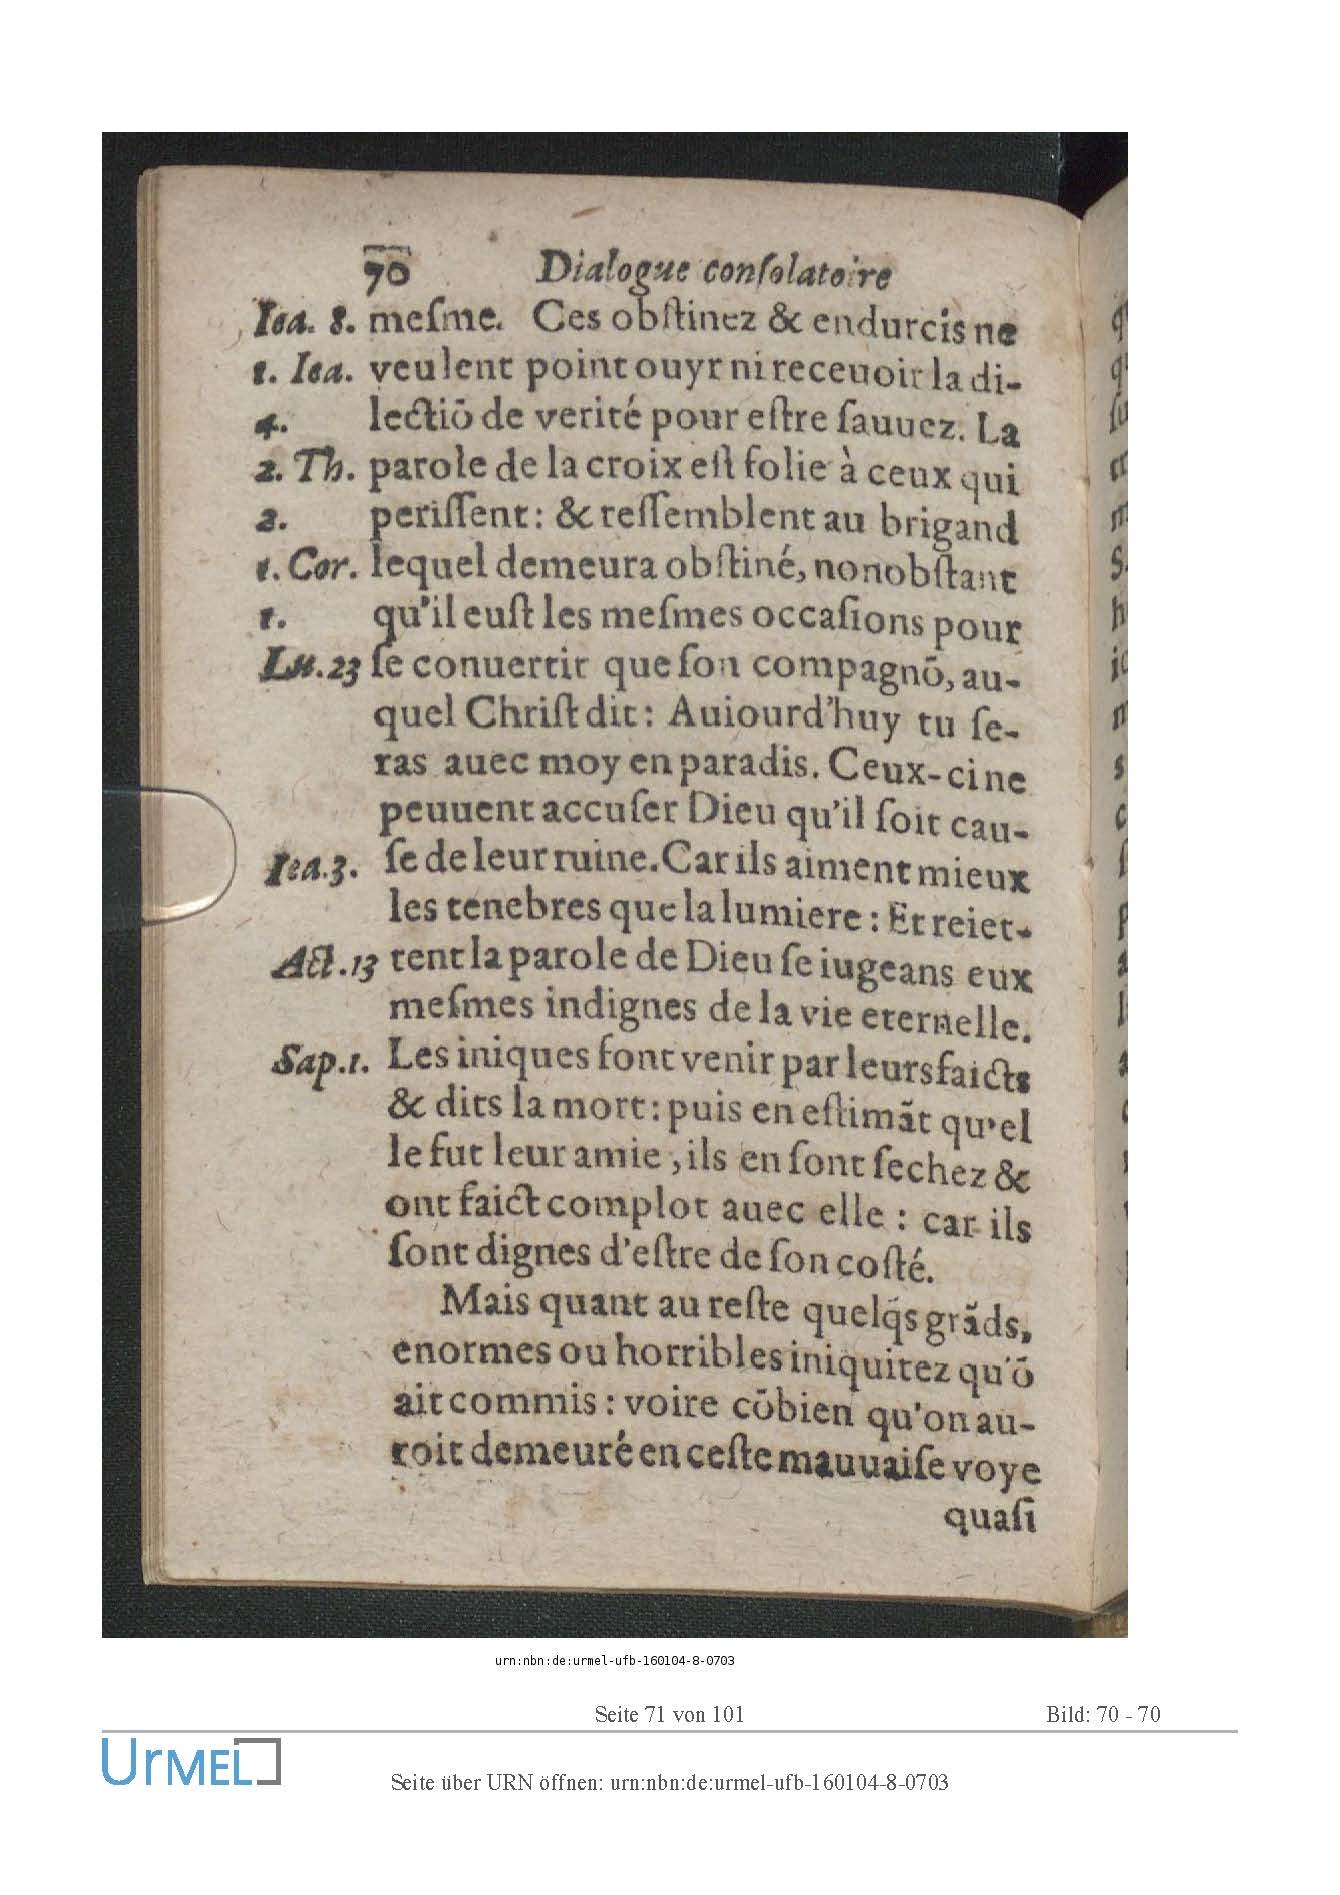 70 Dialogue conſolatoire
Iea. 8. meſme. Ces obſtinez & endurcis ne
1. Iea. veulent point ouyr ni receuoir la di-
4. lectiō de verité pour eſtre ſauuez. La
2. Th. parole de la croix eſt folie à ceux qui
2. periſſent: & reſſemblent au brigand
1. Cor. lequel demeura obſtiné, nonobſtant
1. qu'il euſt les meſmes occaſions pour
Lu.23 ſe conuertir que ſon compagnō, au-
quel Chriſt dit: Auiourd'huy tu ſe-
ras auec moy en paradis. Ceux-ci ne
peuuent accuſer Dieu qu'il ſoit cau-
Iea.3. ſe de leur ruine. Car ils aiment mieux
les tenebres que la lumiere: Et reiet-
Act.13 tent la parole de Dieu ſe iugeans eux
meſmes indignes de la vie eternelle.
Sap.1. Les iniques font venir par leurs faicts
& dits la mort: puis en eſtimāt qu'el
le fut leur amie, ils en ſont ſechez &
ont faict complot auec elle: car ils
ſont dignes d'eſtre de ſon coſté.
Mais quant au reſte quelq̄s grāds,
enormes ou horribles iniquitez qu'ō
ait commis: voire cōbien qu'on au-
roit demeuré en ceſte mauuaiſe voye
quaſi
urn:nbn:de:urmel-ufb-160104-8-0703
Seite 71 von 101 Bild: 70 - 70
UrMEL
Seite über URN öffnen: urn:nbn:de:urmel-ufb-160104-8-0703